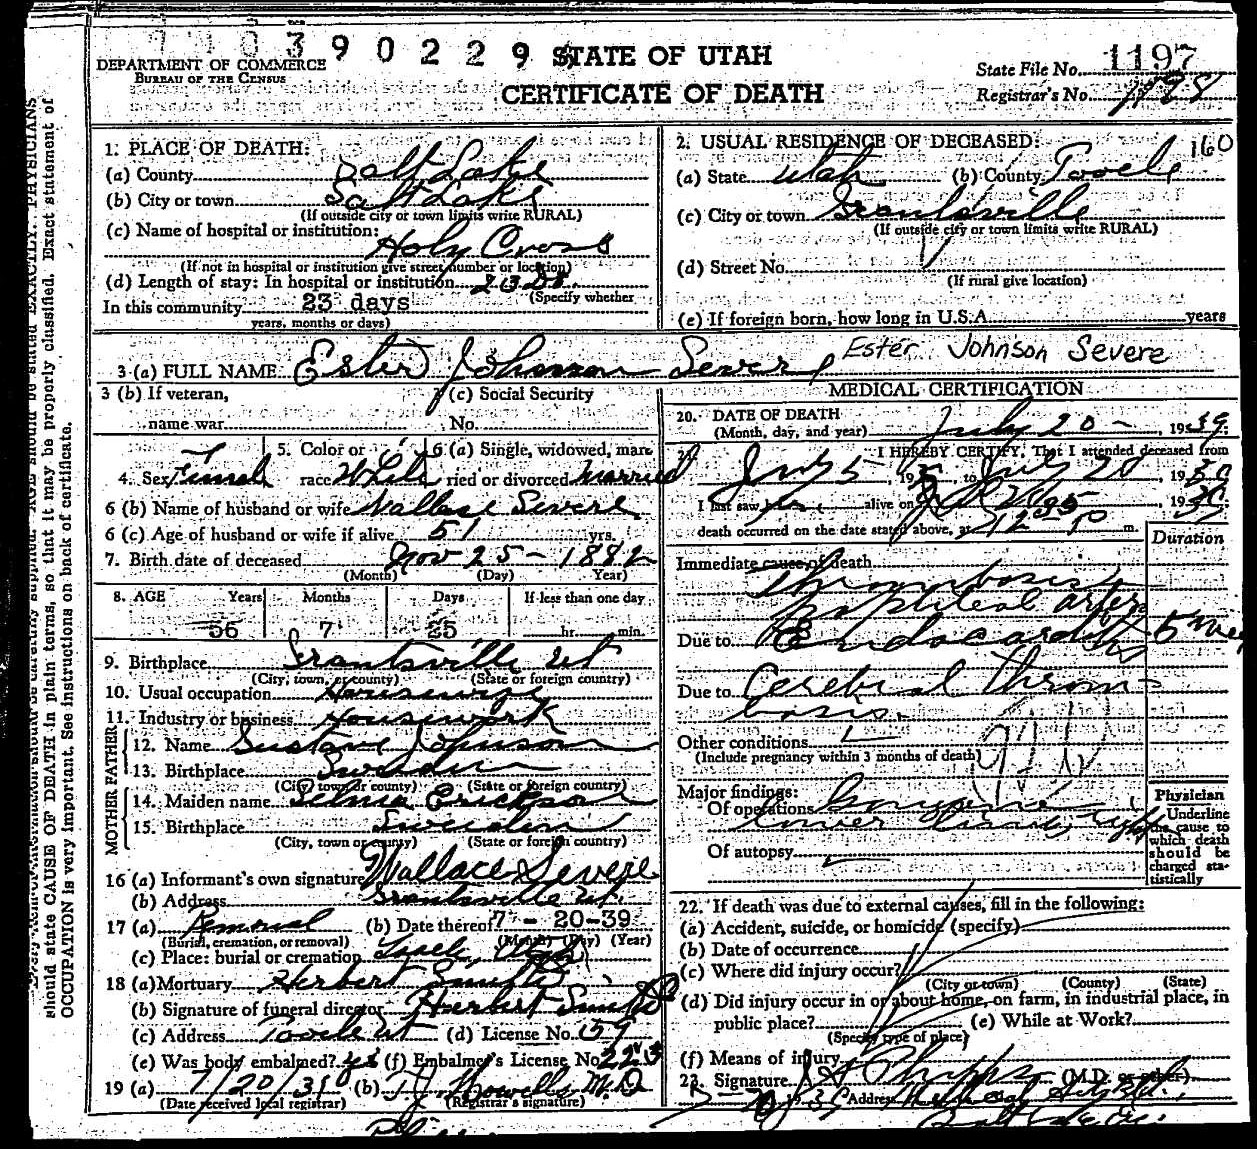 390229
STATE OF UTAH
CERTIFICATE OF DEATH
DEPARTMENT OF COMMERCE
BUREAU OF THE CENSUS
State File No. 1197
Registrar's No. 1128
1. PLACE OF DEATH:
(a) County Salt Lake
(b) City or town Salt Lake
(If outside city or town limits write RURAL)
(c) Name of hospital or institution:
Holy Cross
(If not in hospital or institution give street number or location)
(d) Length of stay: In hospital or institution 23 ds.
(Specify whether
In this community 23 days
years, months or days)
2. USUAL RESIDENCE OF DECEASED: 160
(a) State Utah (b) County Tooele
(c) City or town Grantsville
(If outside city or town limits write RURAL)
(d) Street No.
(If rural give location)
(e) If foreign born, how long in U.S.A. years
3 (a) FULL NAME Ester Johnson Severe Ester Johnson Severe
3 (b) If veteran,
name war
3 (c) Social Security
No.
4. Sex Female 5. Color or race White 6 (a) Single, widowed, married or divorced Married
6 (b) Name of husband or wife Wallace Severe
6 (c) Age of husband or wife if alive 51 yrs.
7. Birth date of deceased Nov 25 - 1882
(Month) (Day) Year)
8. AGE Years Months Days If less than one day
56 7 25 hr. min.
9. Birthplace Grantsville Ut
(City, town, or county) (State or foreign country)
10. Usual occupation Housewife
11. Industry or business Housework
FATHER
12. Name Gustave Johnson
13. Birthplace Sweden
(City, town or county) (State or foreign country)
MOTHER
14. Maiden name Selma Erickson
15. Birthplace Sweden
(City, town or county) (State or foreign country)
16 (a) Informant's own signature Wallace Severe
(b) Address Grantsville Ut.
17 (a) Removal (b) Date thereof 7-20-39
(Burial, cremation, or removal) (Month) (Day) (Year)
(c) Place: burial or cremation Utah
18 (a) Mortuary Herbert Smith
(b) Signature of funeral director Herbert Smith
(c) Address Tooele Ut (d) License No. 159
(e) Was body embalmed? yes (f) Embalmer's License No. 225
19 (a) 7/20/39 (b) T.J. Howells M.D.
(Date received local registrar) (Registrar's signature)
MEDICAL CERTIFICATION
20. DATE OF DEATH
(Month, day, and year) July 20 - , 1939.
21. I HEREBY CERTIFY, That I attended deceased from
July 5, 19 to July 20, 1939
I last saw alive on 1939
death occurred on the date stated above, at 12 P m.
Duration
Immediate cause of death
Thrombosis
popliteal artery
Due to Endocarditis 5
Due to Cerebral Throm-
bosis.
Other conditions
(Include pregnancy within 3 months of death)
Major findings:
Of operations Gangrene
lower right
Of autopsy
Physician
Underline
the cause to
which death
should be
charged sta-
tistically
22. If death was due to external causes, fill in the following:
(a) Accident, suicide, or homicide (specify)
(b) Date of occurrence
(c) Where did injury occur?
(City or town) (County) (State)
(d) Did injury occur in or about home, on farm, in industrial place, in
public place? (e) While at Work?
(Specify type of place)
(f) Means of injury
23. Signature Phipps (M.D. or other)
Address
should state CAUSE OF DEATH in plain terms, so that it may be properly classified. Exact statement of
OCCUPATION is very important. See instructions on back of certificate.